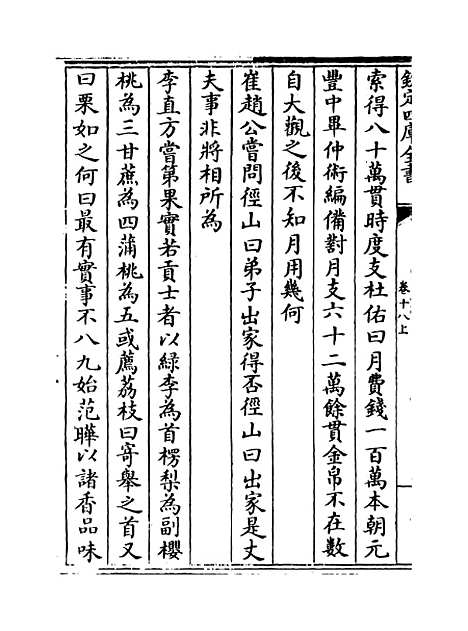 欽定四庫全書
卷十八上
索得八十萬貫時度支杜佑曰月費錢一百萬本朝元
豐中畢仲術編備對月支六十二萬餘貫金帛不在數
自大觀之後不知月用幾何
崔趙公嘗問徑山曰弟子出家得否徑山曰出家是丈
夫事非將相所為
李直方嘗第果實若貢士者以綠李為首楞梨為副櫻
桃為三甘蔗為四蒲桃為五或薦荔枝曰寄舉之首又
曰栗如之何曰最有實事不八九始范曄以諸香品味